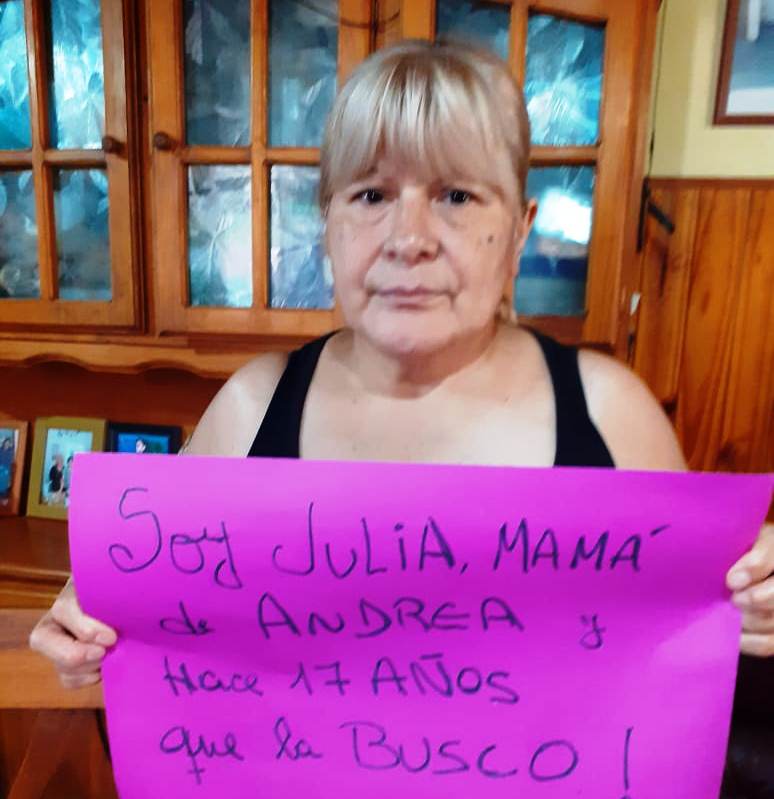 Soy JULiA, MAMÁ
de ANDREA y
Hace 17 AÑOS
que la BUSCO!